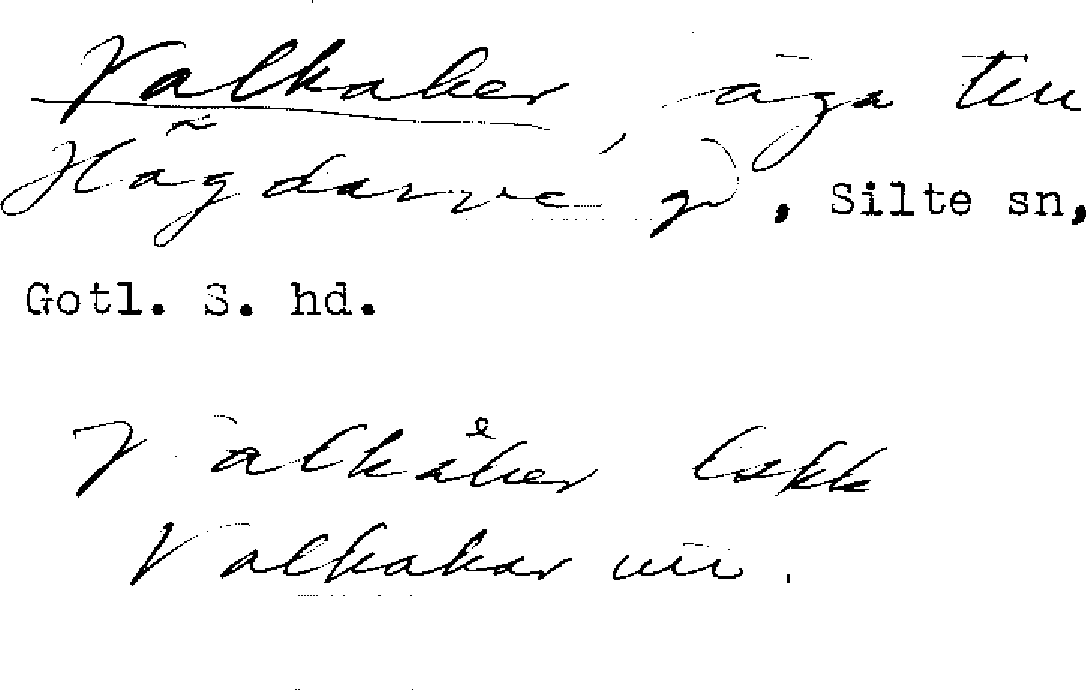 Valkaker, äga till
Hägdarve gd, Silte sn,
Gotl. S. hd.
Valkåker
Valkakar